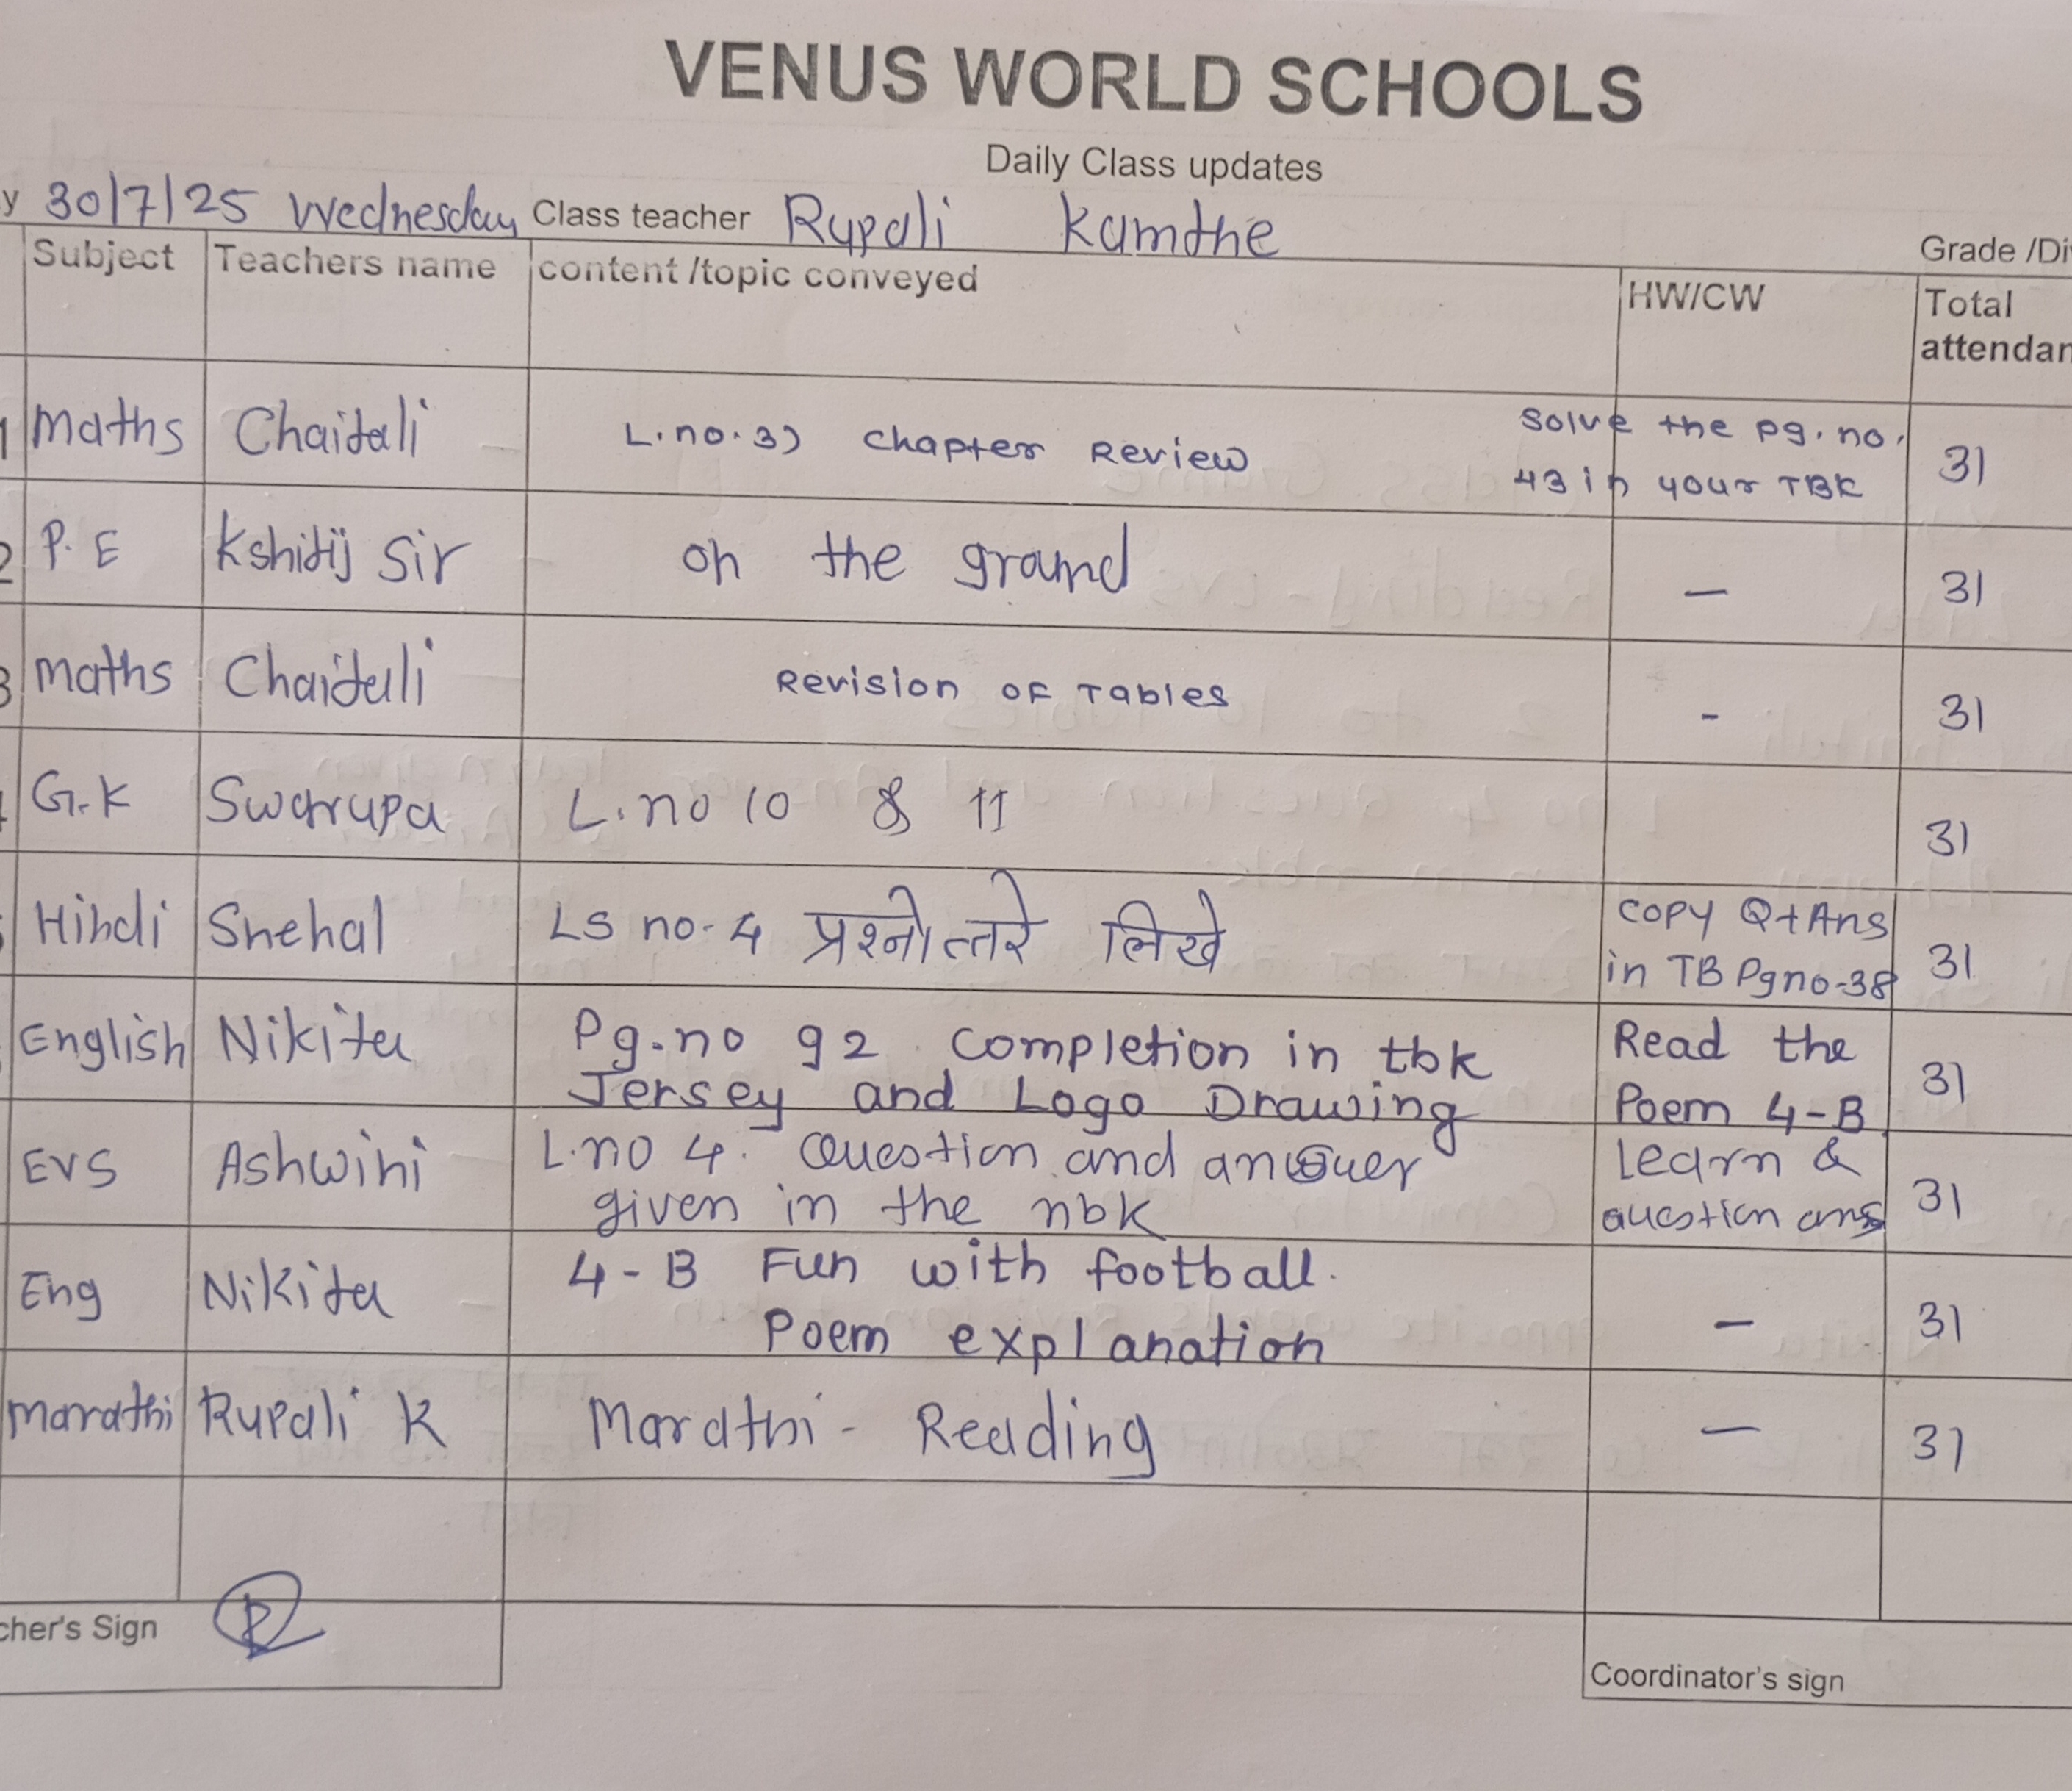 VENUS WORLD SCHOOLS
Daily Class updates
y 30/7/25 Wednesday Class teacher Rupali Kamthe Grade /Di
Subject Teachers name content /topic conveyed HW/CW Total attendan
1 Maths Chaitali L.no.3) chapter Review Solve the pg.no. 43 in your TBK 31
2 P.E Kshitij Sir on the ground — 31
3 Maths Chaitali Revision of Tables - 31
G.K Swarupa L.no 10 & 11 31
Hindi Snehal LS no-4 प्रश्नोत्तरे लिखे copy Q+Ans in TB Pg no-38 31
English Nikita Pg.no 92 completion in tbk Jersey and Logo Drawing Read the Poem 4-B 31
EVS Ashwini L.no 4. Question and answer given in the nbk Learn & question ans 31
Eng Nikita 4-B Fun with football. Poem explanation — 31
Marathi Rupali K Marathi - Reading — 31
cher's Sign
Coordinator's sign